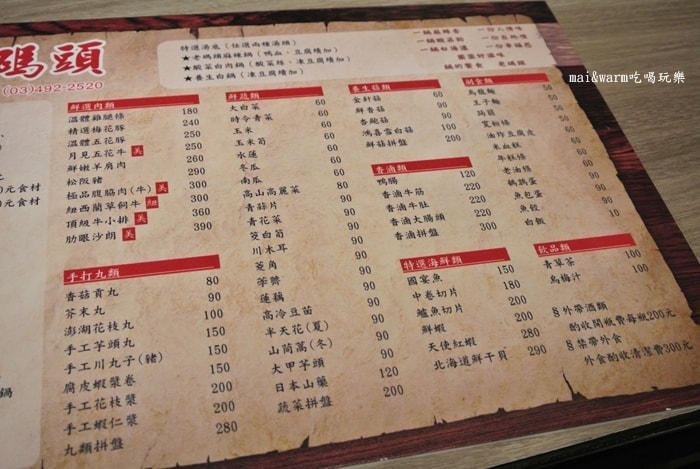 媽頭
(03)492-2520
特選湯底(任選兩種湯頭)
★老媽頭麻辣鍋(鴨血、豆腐續加)
★酸菜白肉鍋(酸菜絲、凍豆腐續加)
★養生白鍋(凍豆腐續加)
一鍋麻辣香
一鍋酸菜韵
一鍋白湯濃
mai&warm吃喝玩樂
元食材
0元食材
鍋
鮮選肉類
溫體雞腿條 180
精選梅花豚 240
溫體五花豚 240
月見五花牛 美 200
鮮嫩羊肩肉 290
松阪豬 300
極品腹脇肉(牛) 美 300
紐西蘭草飼牛 紐 300
頂級牛小排 美 360
肋眼沙朗 美 390
手打丸類
香菇貢丸 80
芥末丸 90
澎湖花枝丸 100
手工芋頭丸 150
手工川丸子(豬) 150
腐皮蝦漿卷 200
手工花枝漿 200
手工蝦仁漿 200
丸類拼盤 280
鮮蔬類
大白菜 60
時令青菜 60
玉米 60
玉米筍 60
水蓮 60
冬瓜 60
南瓜 60
高山高麗菜 80
青蒜片 90
青花菜 90
茭白筍 90
川木耳 90
菱角 90
荸薺 90
蓮藕 90
高冷豆苗 90
半天花(夏) 90
山茼蒿(冬) 90
大甲芋頭 90
日本山藥 120
蔬菜拼盤 200
養生菇類
金針菇 60
鮮香菇 90
杏鮑菇 90
鴻喜雪白菇 90
鮮菇拼盤 200
香滷類
鴨腸 120
香滷牛筋 220
香滷牛肚 220
香滷大腸頭 220
香滷拼盤 300
特選海鮮類
國宴魚 150
中卷切片 180
鱸魚切片 200
鮮蝦 200
天使紅蝦 280
北海道鮮干貝 290
副食類
烏龍麵 50
王子麵
蒟蒻
寬粉條
油炸豆腐皮
米血糕
年糕條
老油條
鵪鶉蛋
魚包蛋
魚餃
白飯 10
飲品類
青草茶 100
烏梅汁 100
8外帶酒類
酌收開瓶費每瓶200元
8禁帶外食
外食酌收清潔費300元